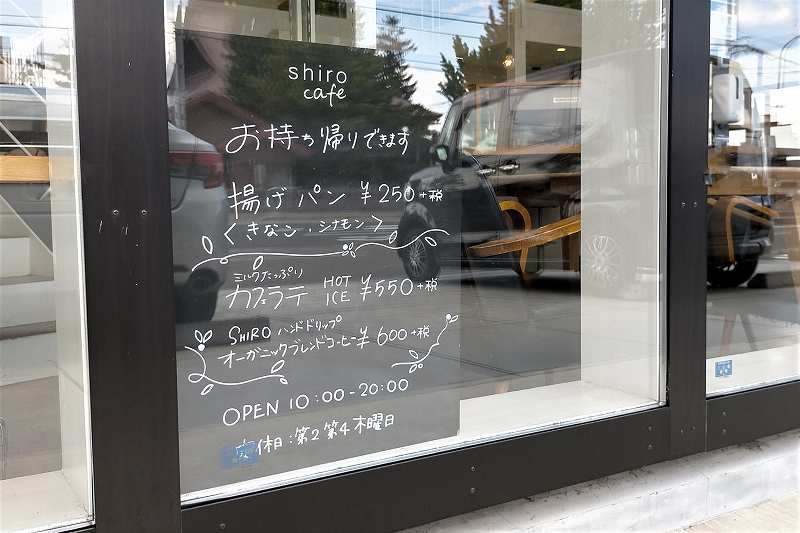 shiro
cafe
お持ち帰りできます
揚げパン ¥250+税
〈きなこ・シナモン〉
ミルクたっぷり
カフェラテ HOT ICE ¥550+税
SHIRO ハンドドリップ
オーガニックブレンドコーヒー ¥600+税
OPEN 10:00-20:00
休日:第2 第4 木曜日